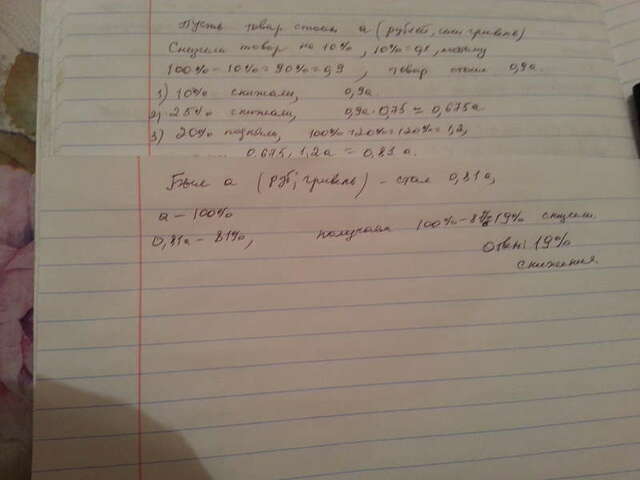 Пусть товар стоил а (рублей, или гривень)
Снизили товар на 10%, 10%=0,1, поэтому
100%-10%=90%=0,9, товар стоил 0,9а.
1) 10% снижали, 0,9а.
2) 25% снижали, 0,9а·0,75 = 0,675а
3) 20% подняли, 100%+20%=120%=1,2,
0,675·1,2а = 0,81а.
Был а (руб, гривень) - стал 0,81а,
а - 100%
0,81а - 81%, получаем 100%-81%=19% снизили.
Ответ: 19%
снижения.